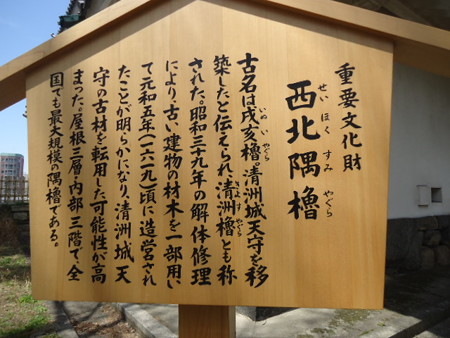 重要文化財
西北隅櫓
せいほくすみやぐら
古名は戌亥櫓。清洲城天守を移
いぬいやぐら
築したと伝えられ、清洲櫓とも称
された。昭和三九年の解体修理
により、古い建物の材木を一部用い
て元和五年(一六一九)頃に造営され
たことが明らかになり、清洲城天
守の古材を転用した可能性が高
まった。屋根二層・内部三階で、全
国でも最大規模の隅櫓である。